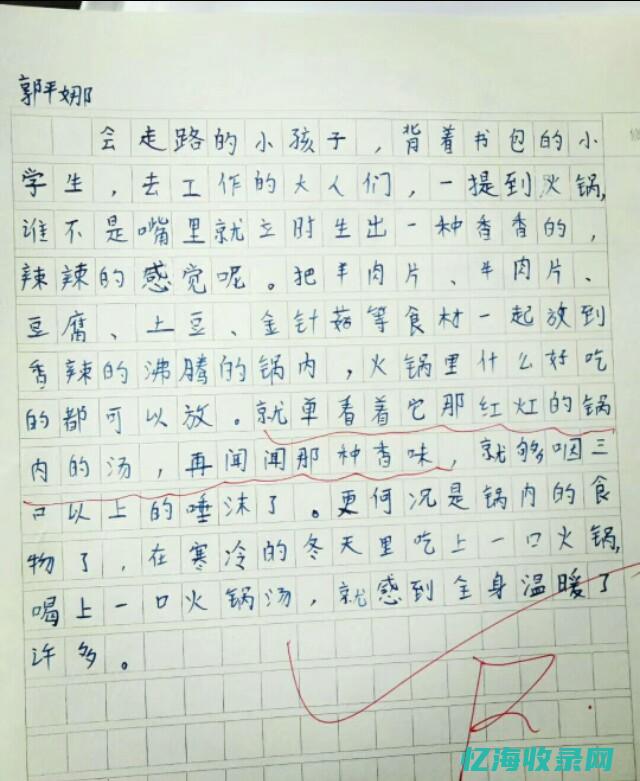 郭平娜
会走路的小孩子，背着书包的小
学生，去工作的大人们，一提到火锅，
谁不是嘴里就立时生出一种香香的，
辣辣的感觉呢。把羊肉片、牛肉片、
豆腐、土豆、金针菇等食材一起放到
香辣的沸腾的锅内，火锅里什么好吃
的都可以放。就单看着它那红灿的锅
内的汤，再闻闻那种香味，就够咽三
口以上的唾沫了。更何况是锅内的食
物了，在寒冷的冬天里吃上一口火锅，
喝上一口火锅汤，就感到全身温暖了
许多。
亿海收录网